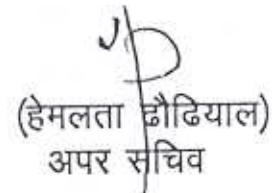 (हेमलता ढौंढियाल)
अपर सचिव